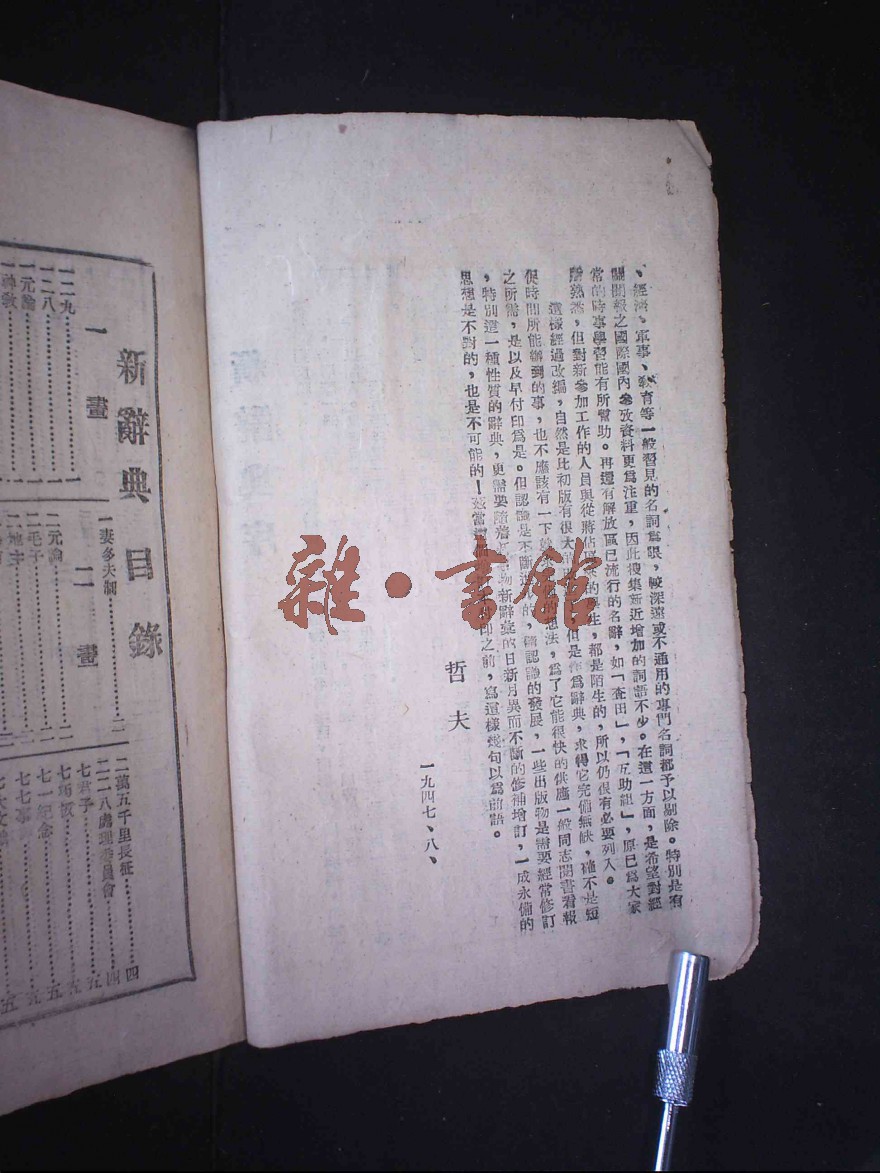 、經濟、軍事、教育等一般習見的名詞爲限，較深遠或不通用的專門名詞都予以剔除。特別是有
關閱報之國際國內參攷資料更爲注重，因此搜集新近增加的詞語不少。在這一方面，是希望對經
常的時事學習能有所幫助。再還有解放區已流行的名辭，如「查田」，「互助組」，原已爲大家
所熟悉，但對新參加工作的人員與從蔣佔區來的學生，都是陌生的，所以仍很有必要列入。
這樣經過改編，自然是比初版有很大 但是作爲辭典，求得它完備無缺，確不是短
促時間所能辦到的事，也不應該有一下 的想法，爲了它能很快的供應一般同志閱書看報
之所需，是以及早付印爲是。但認識是不斷 的，隨認識的發展，一些出版物是需要經常修訂
，特別這一種性質的辭典，更需要隨着 物新辭彙的日新月異而不斷的修補增訂，一成永備的
思想是不對的，也是不可能的！ 當 印之前，寫這樣幾句以爲前語。
哲夫
一九四七、八、
雜·書館
新辭典目錄
一畫
一二九
一二八
一元論
一神教
一妻多夫制 二
二畫
二元論 二
二毛子 二
二地主
二萬五千里長征 四
二二八處理委員會 四
七君子 五
七項 五
七一紀念 五
七七事 五
七大文